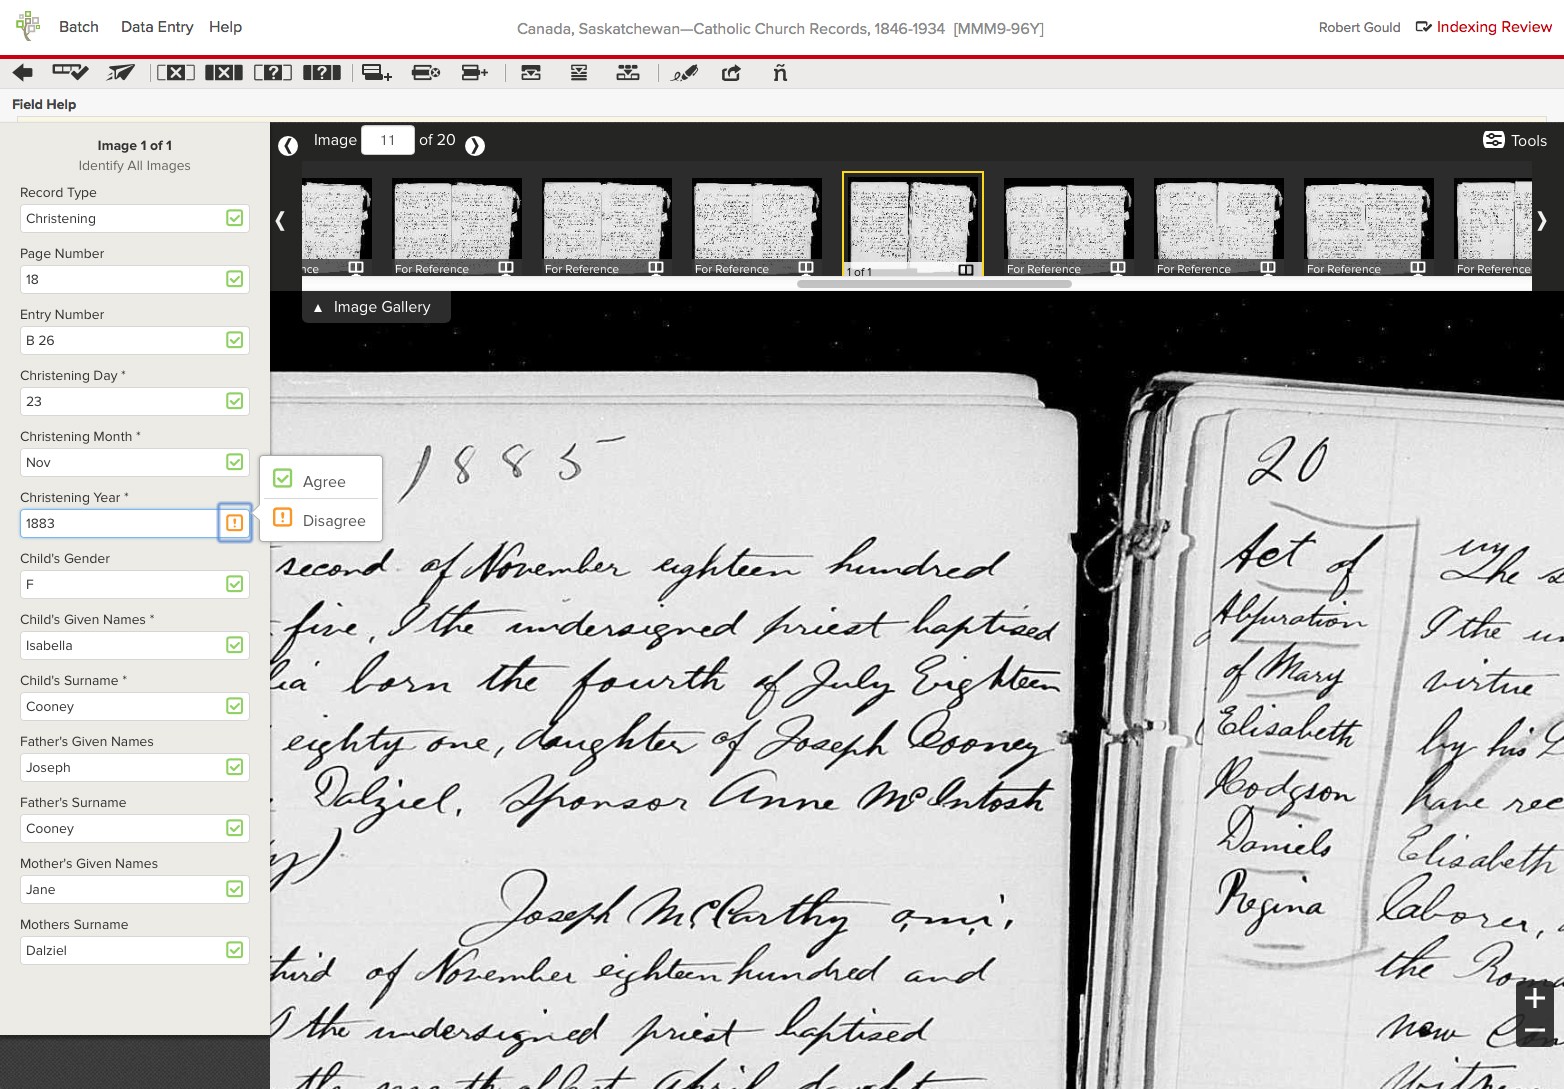 Batch Data Entry Help
Canada, Saskatchewan—Catholic Church Records, 1846-1934 [MMM9-96Y]
Robert Gould Indexing Review
ñ
Field Help
Image 1 of 1
Identify All Images
Record Type
Christening
Page Number
18
Entry Number
B 26
Christening Day *
23
Christening Month *
Nov
Christening Year *
1883
Agree
Disagree
Child's Gender
F
Child's Given Names *
Isabella
Child's Surname *
Cooney
Father's Given Names
Joseph
Father's Surname
Cooney
Mother's Given Names
Jane
Mothers Surname
Dalziel
Image 11 of 20
Tools
nce For Reference For Reference For Reference 1 of 1 For Reference For Reference For Reference For Reference
Image Gallery
1885
second of November eighteen hundred
five, I the undersigned priest baptised
lia born the fourth of July Eighteen
eighty one, daughter of Joseph Cooney
Dalziel, Sponsor Anne McIntosh
y)
Joseph McCarthy o,m,i,
third of November eighteen hundred and
I the undersigned priest baptised
20
Act of
Abjuration
of Mary
Elisabeth
Hodgson
Daniels
Regina
The s
I the un
virtue
by his L
have rec
Elisabeth
laborer,
the Roma
now Con